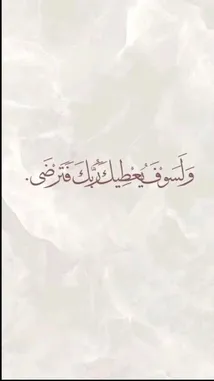 وَلَسَوْفَ يُعْطِيكَ رَبُّكَ فَتَرْضَى.